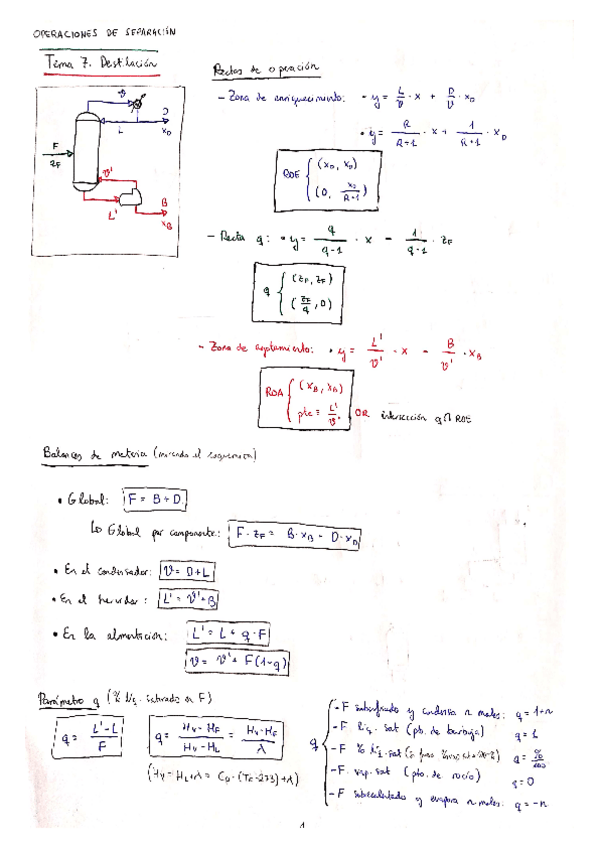 OPERACIONES DE SEPARACIÓN
Tema 7. Destilación
Rectas de operación
- Zona de enriquecimiento: • y = L/V · x + D/V · xD
• y = R/(R+1) · x + 1/(R+1) · xD
ROE { (xD, xD)
(0, xD/(R+1))
V
D
L
xD
F
zF
V'
B
L'
xB
- Recta q: • y = q/(q-1) · x - 1/(q-1) · zF
q { (zF, zF)
(zF/q, 0)
- Zona de agotamiento: • y = L'/V' · x - B/V' · xB
ROA { (xB, xB)
pte = L'/V' OR intersección q ∩ ROE
Balances de materia (mirando el esquema)
• Global: F = B + D
↳ Global por componente: F · zF = B · xB + D · xD
• En el condensador: V = D + L
• En el hervidor: L' = V' + B
• En la alimentación: L' = L + q · F
V = V' + F(1-q)
Parámetro q (% líq. saturado en F)
q = (L'-L)/F
q = (HV - HF)/(HV - HL) = (HV - HF)/λ
(HV = HL + λ = Cp · (Te - 273) + λ)
q { - F subenfriado y condensa n moles: q = 1+n
- F líq. sat (pto. de burbuja) q = 1
- F % líq. sat q = %/100
- F vap. sat (pto. de rocío) q = 0
- F sobrecalentado y evapora n moles: q = -n
1